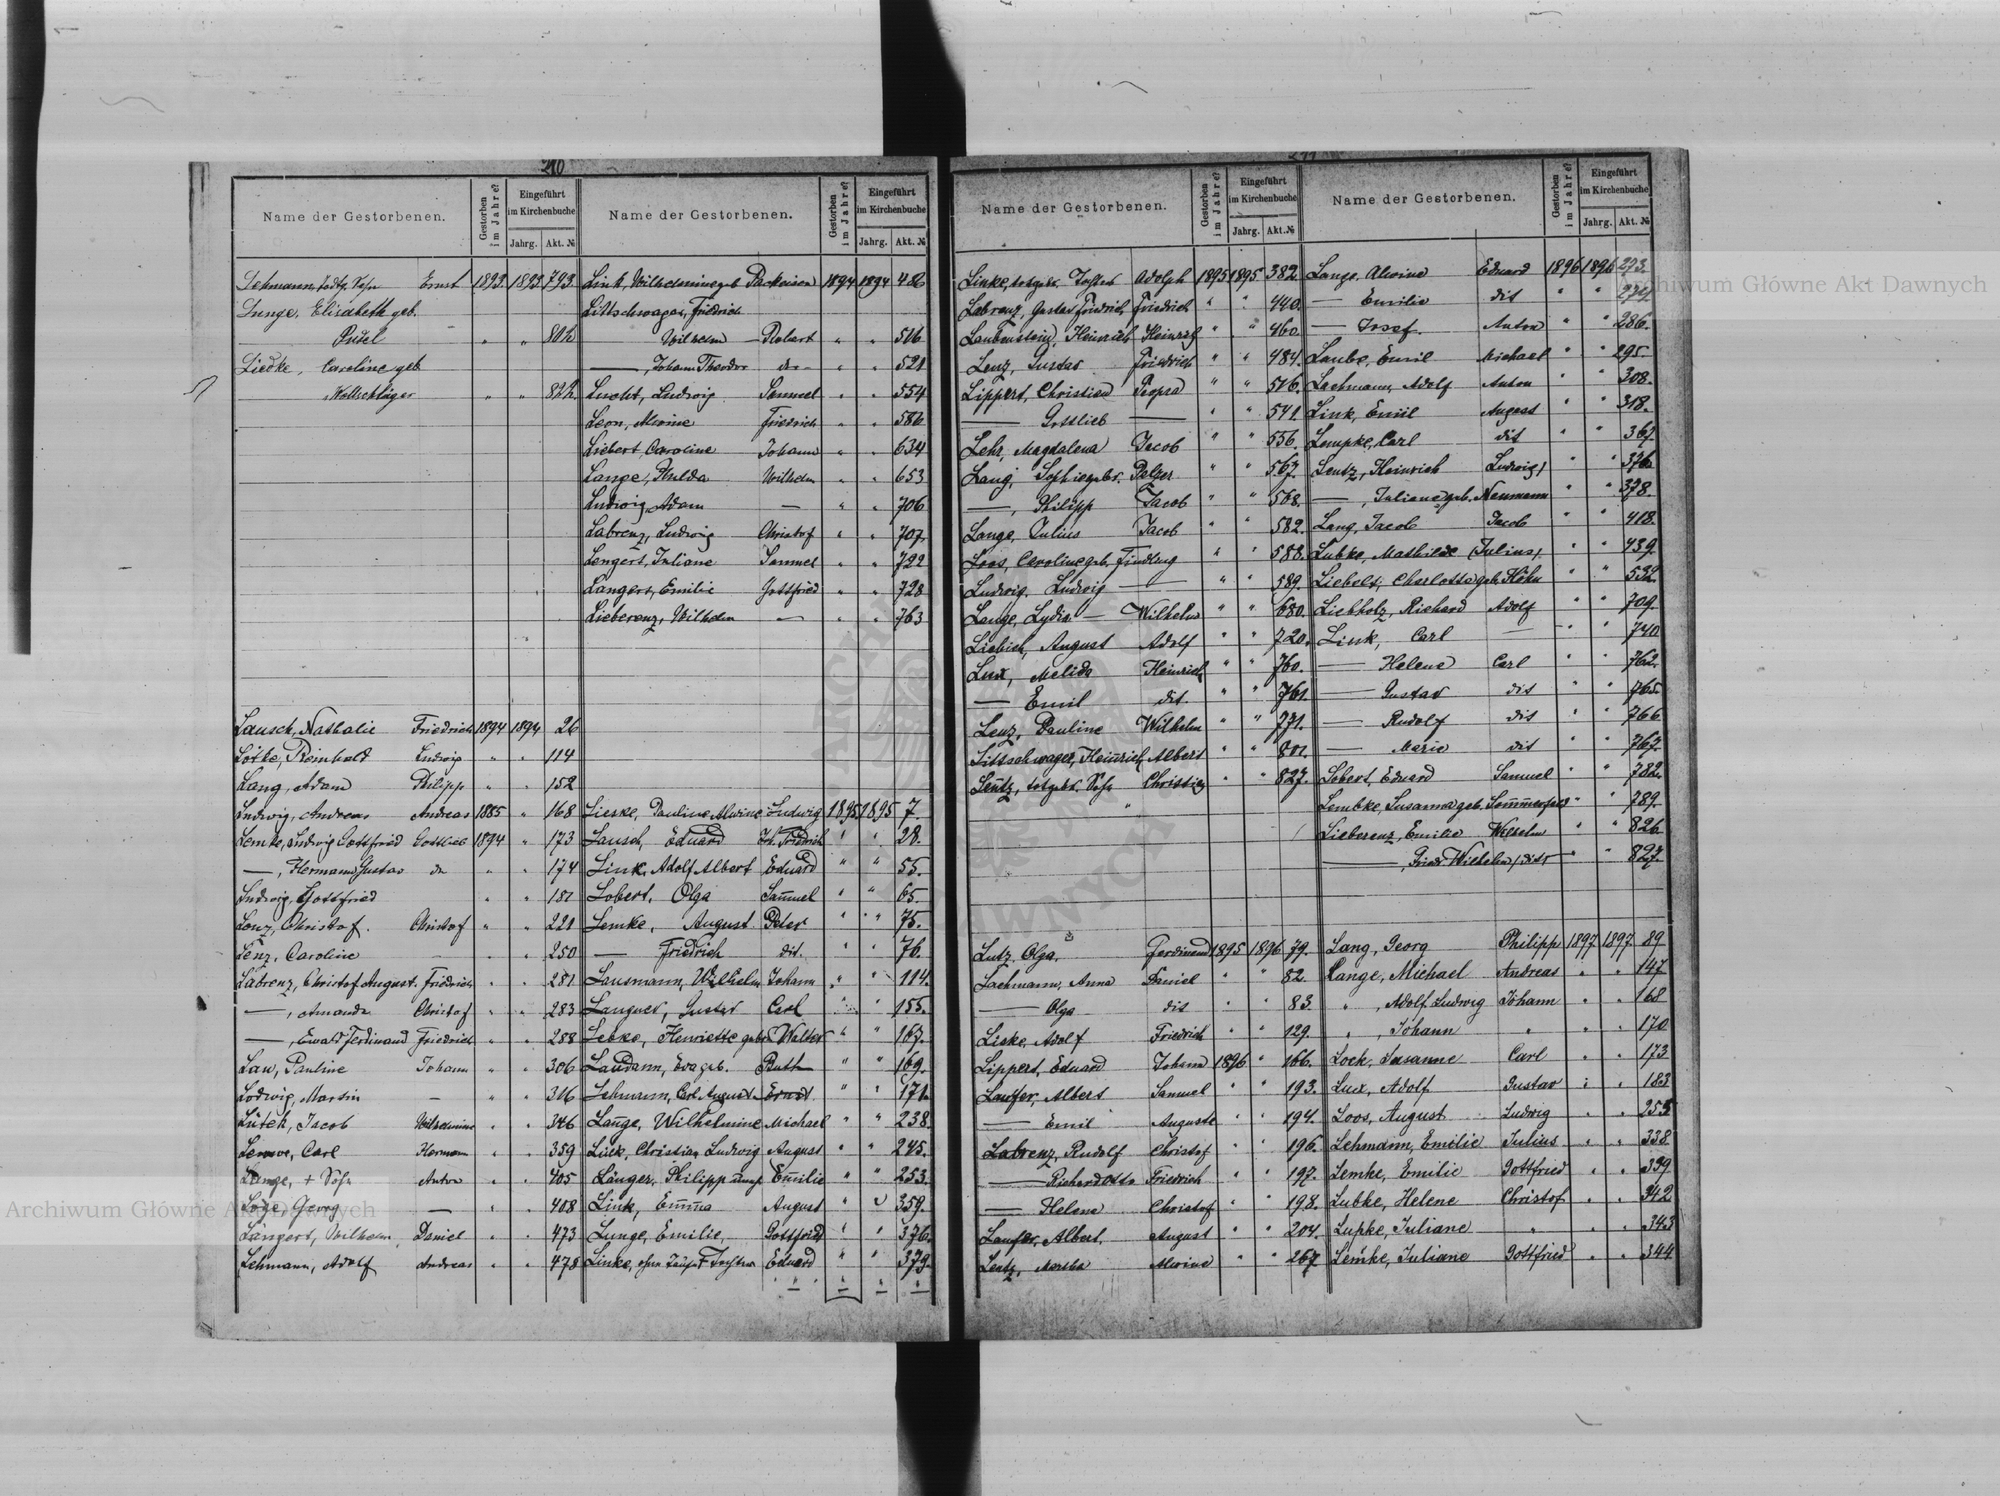 210
Name der Gestorbenen. Gestorben im Jahre? Eingeführt im Kirchenbuche Jahrg. Akt. №
Lehmann, todtg. Sohn Ernst 1893 1893 793
Lange, Elisabeth geb.
" " 802
Liedke, Caroline geb
Wollschläger " " 822
Lausch, Nathalie Friedrich 1894 1894 26
Lötke, Reinhold Ludwig " " 114
Lang, Adam Philipp " " 152
Ludwig, Andreas Andreas 1885 " 168
Lemke, Ludwig Gottfried Gottlieb 1894 " 173
—, Hermann Gustav do " " 174
Ludwig, Gottfried " " 181
Lenz, Christof. Christof " " 221
Lenz, Caroline — " " 250
Labrenz, Christof August. Friedrich " " 281
—, Amanda Christof " " 283
—, Ewald Ferdinand Friedrich " " 288
Lau, Pauline Johann " " 306
Ludwig, Martin — " " 316
Lütek, Jacob Wilhelmine " " 346
Carl Hermann " " 359
Lange, + Sohn Anton " " 405
Georg — " " 408
Längert, Wilhelm, Daniel " " 473
Lehmann, Adolf Andreas " " 478
Name der Gestorbenen. Gestorben im Jahre? Eingeführt im Kirchenbuche Jahrg. Akt. №
Link, Wilhelmine geb 1894 1894 486
Littschwager, Friedrich
Wilhelm — Robert " " 506
—, Johann Theodor do- " " 521
Lucht, Ludwig Samuel " " 554
Leon, Alwine Friedrich " " 586
Liebert, Caroline Johann " " 634
Lange, Hulda Wilhelm " " 653
Ludwig, Adam — " " 706
Labrenz, Ludwig Christof " " 707
Lengert, Juliane Samuel " " 722
Langert, Emilie Gottfried " " 728
Lieberenz, Wilhelm — " " 763
Lieske, Pauline Alwine Ludwig 1895 1895 7.
Lausch, Eduard Friedrich " " 28.
Link, Adolf Albert Eduard " " 55.
Lobert, Olga Samuel " " 65.
Lemke, August Peter " " 75.
— Friedrich dit. " " 76.
Lausmann, Wilhelm Johann " " 114.
Langner, Gustav Carl " " 155.
Lebke, Henriette gebor. Walter " " 167.
Laudann, Eva geb. Buth " " 169.
Lehmann, Carl August Ernst " " 171.
Lange, Wilhelmine Michael " " 238.
Link, Christian Ludwig August " " 245.
Länger, Philipp Emilie " " 253.
Link, Emma August " " 359.
Lange, Emilie, Gottfried " " 376.
Linke, ohne Taufe + Tochter Eduard " " 379.
211
Name der Gestorbenen. Gestorben im Jahre? Eingeführt im Kirchenbuche Jahrg. Akt. №
Linke, totgeb. Tochter Adolph 1895 1895 382.
Labrenz, Gustav Friedrich Friedrich " " 440.
Laubenstein, Heinrich Heinrich " " 460.
Lenz, Gustav Friedrich " " 484.
Lippert, Christian " " 516.
— Gottlieb — " " 541.
Lehr, Magdalena Jacob " " 556.
Lang, Sophie gebor. Pelzer " " 567.
—, Philipp Jacob " " 568.
Lange, Julius Jacob " " 582.
Loos, Caroline geb. Findling " " 588.
Ludwig, Ludwig — " " 589.
Lange, Lydia — Wilhelm " " 680.
Liebich, August Adolf " " 720.
Lux, Melida Heinrich " " 760.
— Emil dit. " " 761.
Lenz, Pauline Wilhelm " " 771.
Littschwager, Heinrich Albert " " 801.
Lentz, totgeb. Sohn Christian " " 827.
Lutz, Olga. Ferdinand 1895 1896 79.
Lachmann, Anna Daniel " " 82.
— Olga dit " " 83.
Liske, Adolf Friedrich " " 129.
Lippert, Eduard Johann 1896 " 166.
Laufer, Albert Samuel " " 193.
— Emil Auguste " " 194.
Labrenz, Rudolf Christof " " 196.
— Richard Otto Friedrich " " 197.
— Helene Christof " " 198.
Laufer, Albert. August " " 204.
Lentz, Martha Alwine " " 267.
Name der Gestorbenen. Gestorben im Jahre? Eingeführt im Kirchenbuche Jahrg. Akt. №
Lange, Alwine Eduard 1896 1896 273.
— Emilie dit " " 274.
— Josef Anton " " 286.
Laube, Emil Michael " " 295.
Lachmann, Adolf Anton " " 308.
Link, Emil August " " 318.
Lempke, Carl dit " " 367.
Lentz, Heinrich Ludwig " " 376.
—, Juliane geb. Neumann " " 378.
Lang, Jacob Jacob " " 418.
Lubke, Mathilde (Julius) " " 439.
Liebelt, Charlotte geb. Höhn " " 532.
Liebholz, Richard Adolf " " 709.
Link, Carl — " " 740
— Helene Carl " " 762.
— Gustav dit " " 765.
— Rudolf dit " " 766
— Marie dit " " 767.
Lobert, Eduard Samuel " " 782.
Lembke, Susanna geb. Sommerfeld " " 789.
Lieberenz, Emilie Wilhelm " " 826
—, Fried. Wilhelm, dit " " 827.
Lang, Georg Philipp 1897 1897 89
Lange, Michael Andreas " " 147
" , Adolf Ludwig Johann " " 168
" , Johann " " " 170
Lock, Susanne Carl " " 173
Lux, Adolf Gustav " " 183
Loos, August Ludwig " " 255
Lehmann, Emilie Julius " " 338
Lemke, Emilie Gottfried " " 339
Lubke, Helene Christof " " 342
Lupke, Juliane " " " 343
Lemke, Juliane Gottfried " " 344
Archiwum Główne Akt Dawnych
Archiwum Główne Akt Dawnych